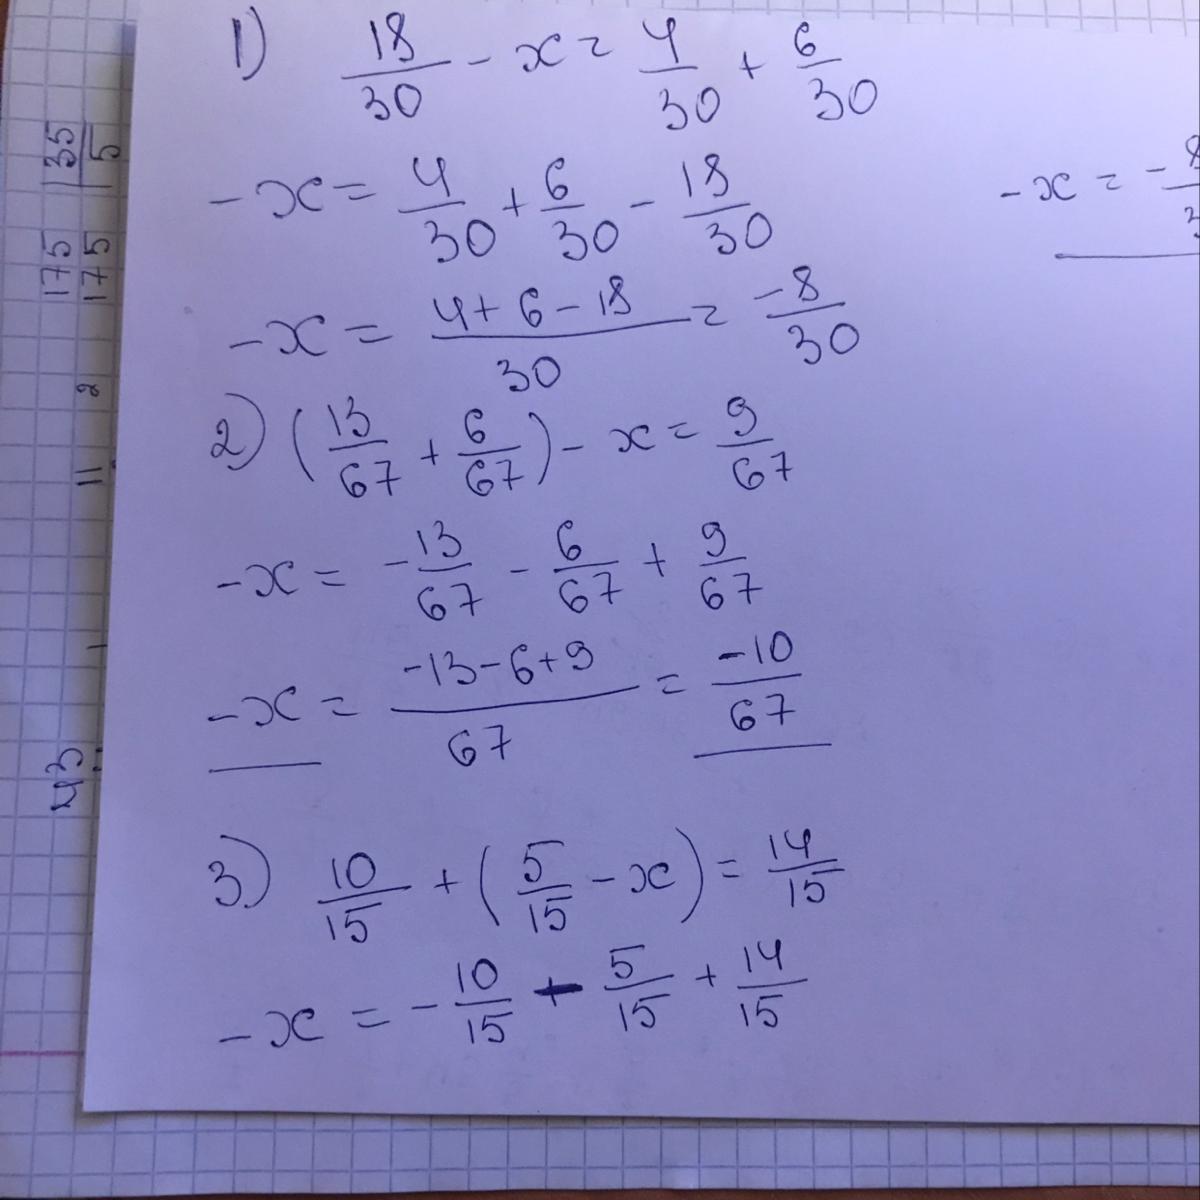 1) 18/30 - x = 4/30 + 6/30
-x = 4/30 + 6/30 - 18/30
-x = -8
-x = 4+6-18/30 = -8/30
2) (13/67 + 6/67) - x = 9/67
-x = -13/67 - 6/67 + 9/67
-x = -13-6+9/67 = -10/67
3) 10/15 + (5/15 - x) = 14/15
-x = -10/15 - 5/15 + 14/15
175 35
175 5
11 2
43